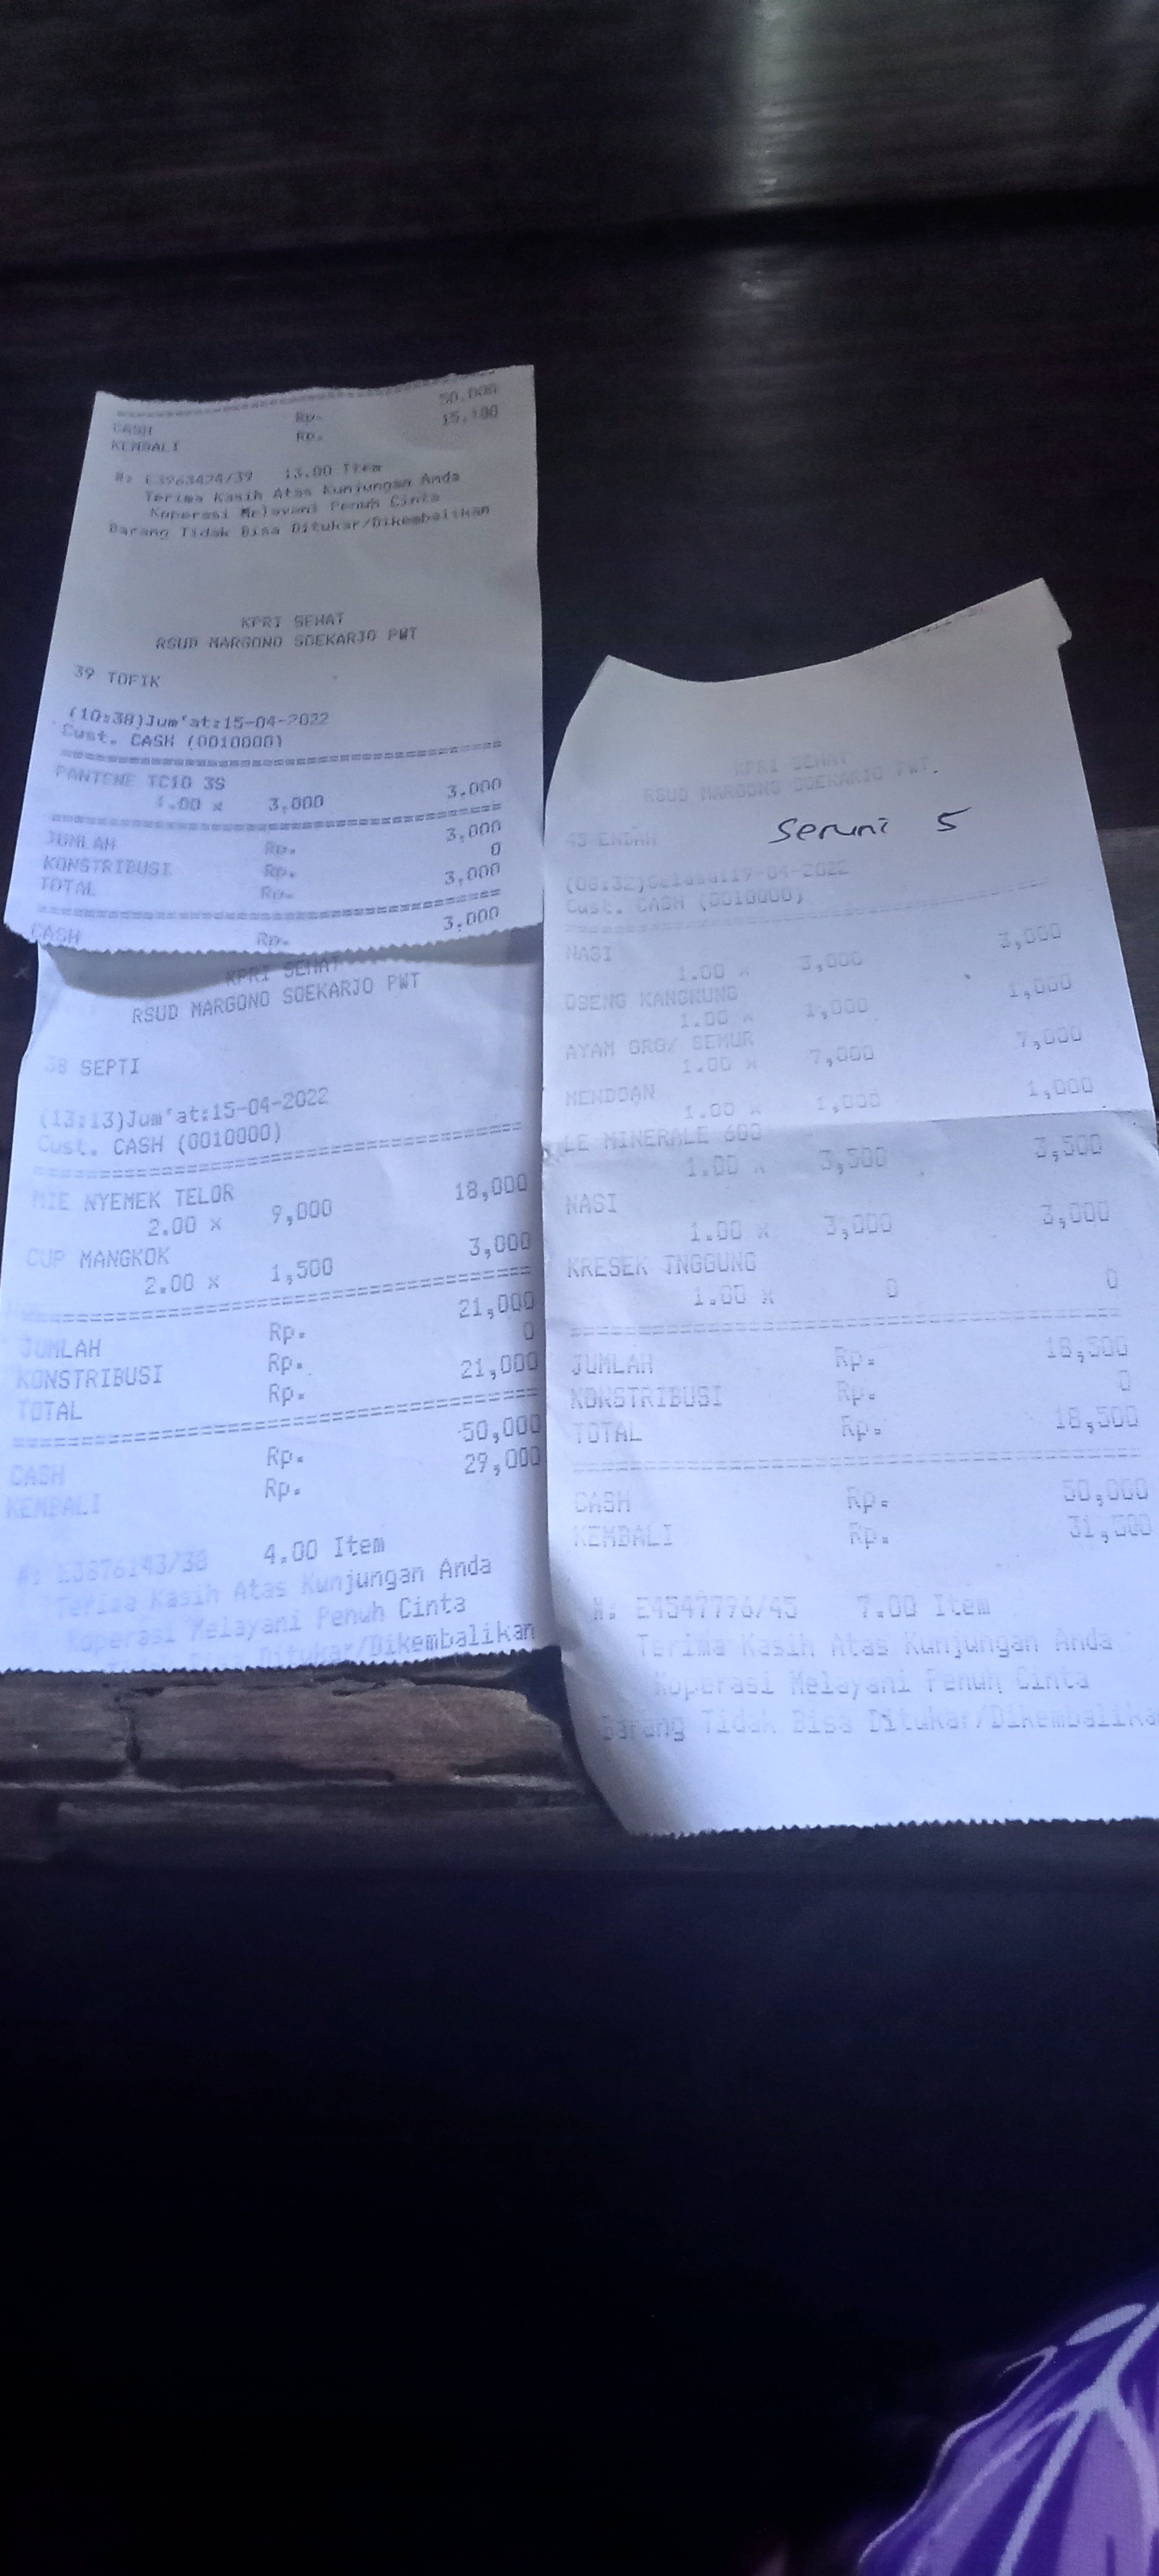 50.000
CASH Rp. 15.100
KEMBALI Rp.
13.00 Item
Terima Kasih Atas Kunjungan Anda
Koperasi Melayani Penuh Cinta
Barang Tidak Bisa Ditukar/Dikembalikan
KPRI SEHAT
RSUD MARGONO SOEKARJO PWT
39 TOFIK
(10:38)Jum'at:15-04-2022
Cust. CASH (0010000)
PANTENE TC10 3S
1.00 x 3,000 3,000
JUMLAH Rp. 3,000
KONSTRIBUSI Rp. 0
TOTAL Rp. 3,000
CASH Rp. 3,000
KPRI SEHAT
RSUD MARGONO SOEKARJO PWT
38 SEPTI
(13:13)Jum'at:15-04-2022
Cust. CASH (0010000)
MIE NYEMEK TELOR
2.00 x 9,000 18,000
CUP MANGKOK
2.00 x 1,500 3,000
JUMLAH Rp. 21,000
KONSTRIBUSI Rp. 0
TOTAL Rp. 21,000
CASH Rp. 50,000
KEMBALI Rp. 29,000
#: E3876143/38 4.00 Item
Terima Kasih Atas Kunjungan Anda
Koperasi Melayani Penuh Cinta
Bisa Ditukar/Dikembalikan
KPRI SEHAT
RSUD MARGONO SOEKARJO PWT
Seruni 5
ENDAH
(08:32)Selasa:19-04-2022
Cust. CASH (0010000)
NASI
1.00 x 3,000 3,000
OSENG KANGKUNG
1.00 x 1,000 1,000
AYAM GRG/ SEMUR
1.00 x 7,000 7,000
MENDOAN
1.00 x 1,000 1,000
LE MINERALE 600
1.00 x 3,500 3,500
NASI
1.00 x 3,000 3,000
KRESEK TNGGUNG
1.00 x 0 0
JUMLAH Rp. 18,500
KONSTRIBUSI Rp. 0
TOTAL Rp. 18,500
CASH Rp. 50,000
KEMBALI Rp. 31,500
#: E4547796/45 7.00 Item
Terima Kasih Atas Kunjungan Anda
Koperasi Melayani Penuh Cinta
Barang Tidak Bisa Ditukar/Dikembalika